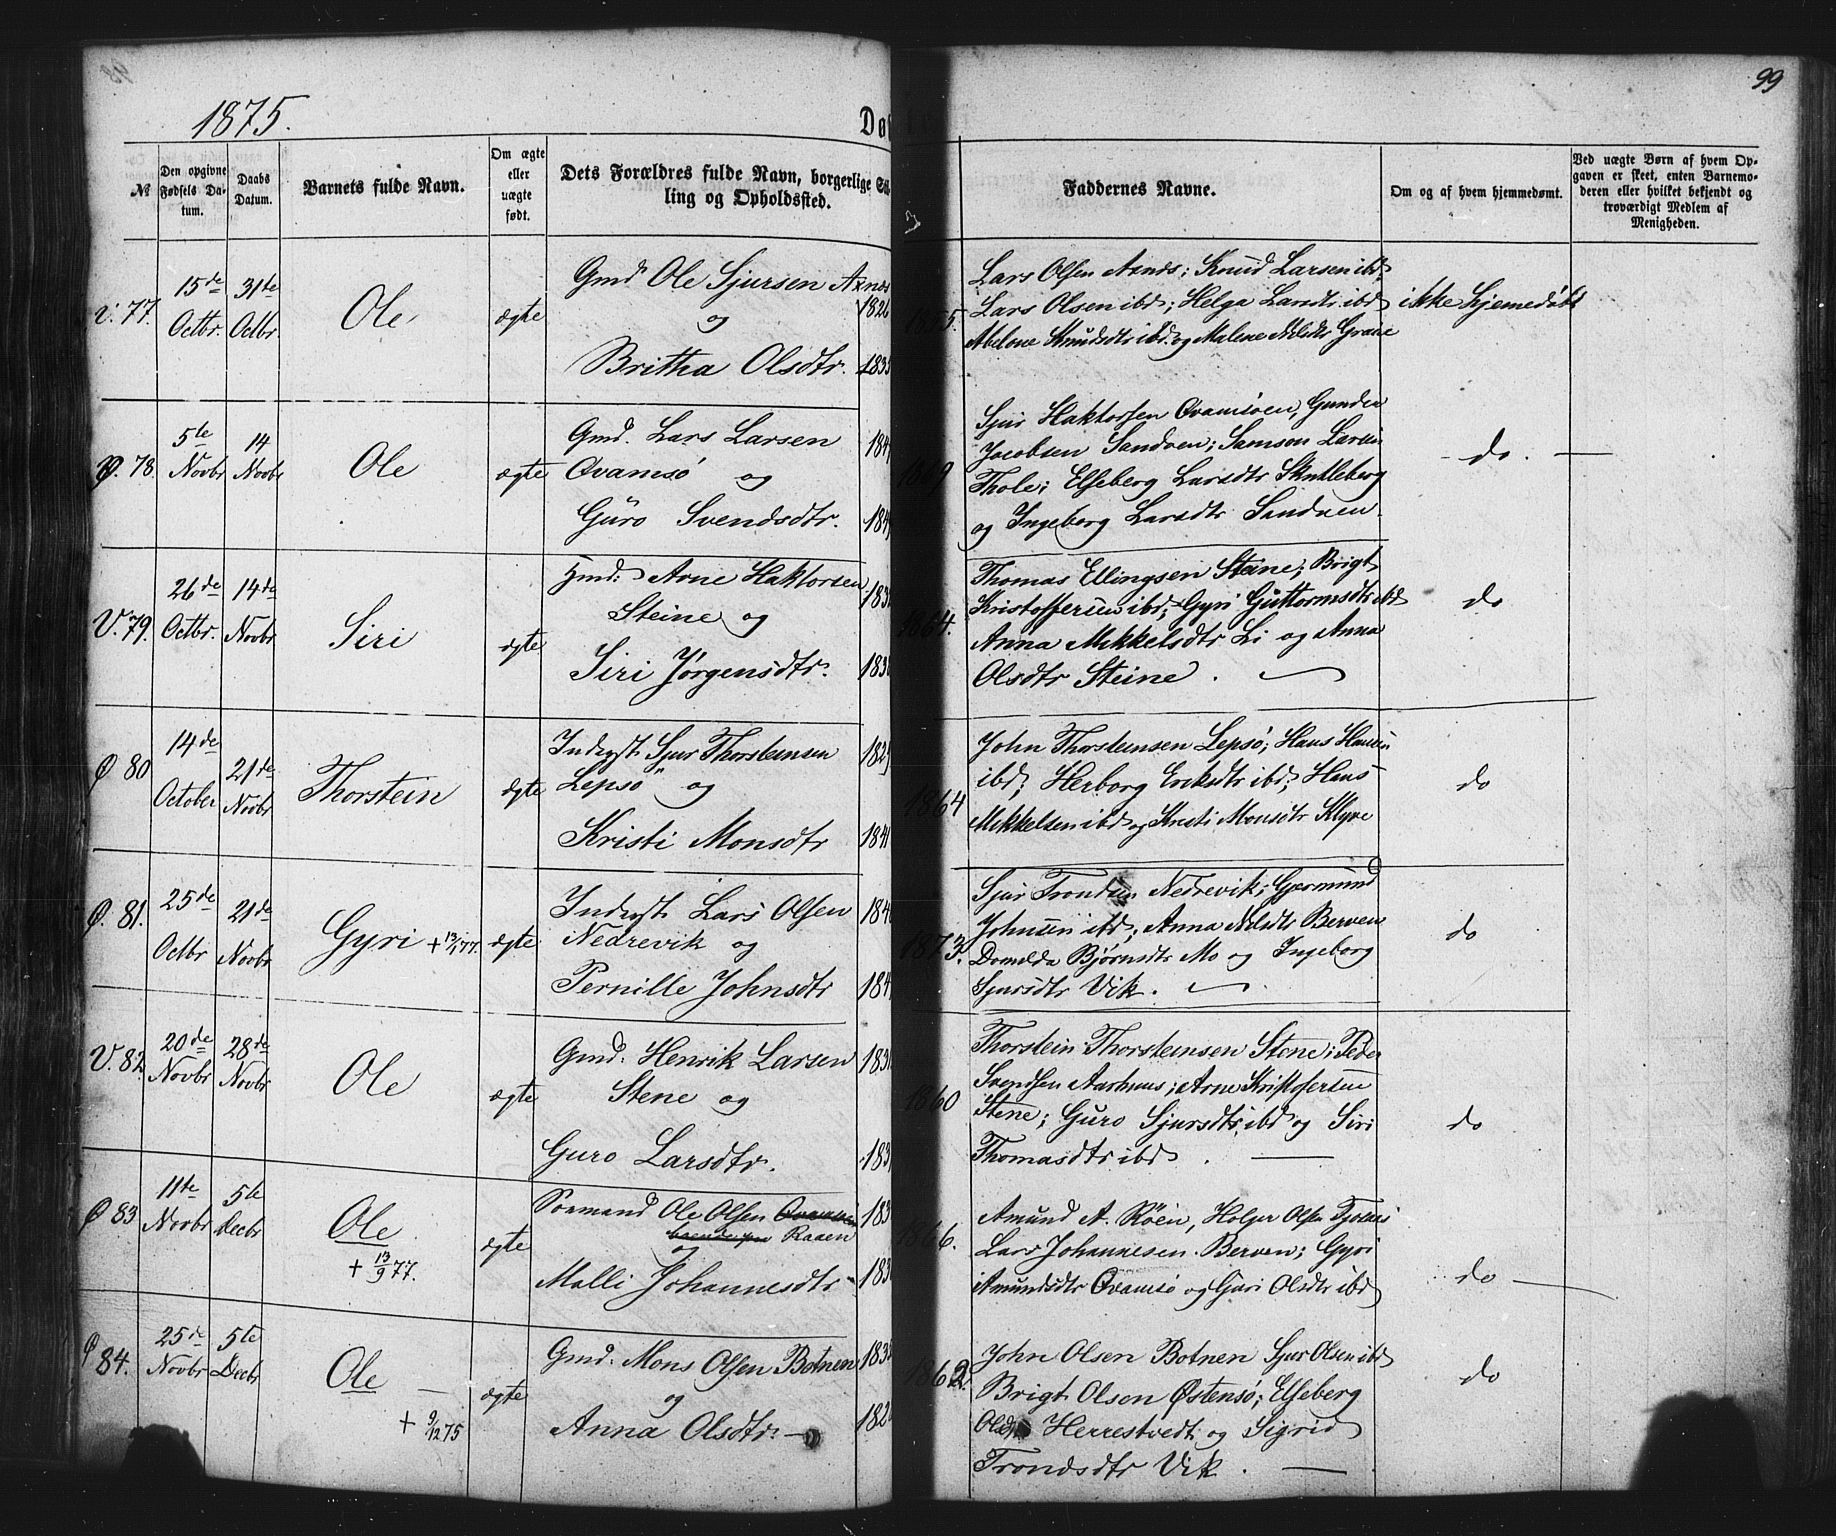 99
1875.
Dø
№
Den opgivne Fødsels Datum.
Daabs Datum.
Barnets fulde Navn.
Om ægte eller uægte født.
Dets Forældres fulde Navn, borgerlige Stilling og Opholdssted.
Faddernes Navne.
Om og af hvem hjemmedømt.
Ved uægte Børn af hvem Opgaven er skeet, enten Barnemoderen eller hvilket bekjendt og troværdigt Medlem af Menigheden.
V. 77. 15de Octbr. 31te Octbr. Ole ægte
Gmd Ole Sjursen Axnes 1826
og
Britha Olsdtr. 1835
1875.
Lars Olsen Axnes; Knud Larsen ibd;
Lars Olsen ibd; Helga Larsdtr ibd
Abelone Knudsdtr ibd. og Malene Nilsdtr Grave
ikke hjemedøbt
Ø. 78. 5te Novbr 14 Novbr Ole ægte
Gmd. Lars Larsen 184
Øvamsø og
Guro Svendsdtr. 184
1869
Sjur Haktorsen Øvamsøen, Gunder
Jacobsen Sandven; Samson Larsen
Thole; Elseberg Larsdtr Skutleberg
og Ingeborg Larsdtr Sandven.
do.
V. 79. 26de Octbr. 14de Novbr Siri ægte
Hmd: Arne Haktorsen 183
Steine og
Siri Jørgensdtr. 183
1864.
Thomas Ellingsen Steine; Brigt
Kristoffersen ibd; Gyri Guttormsdtr ibd
Anna Mikkelsdtr Li og Anna
Olsdtr Steine.
do
Ø 80 14de October 21de Novbr Thorstein ægte
Inderst Sjur Thorsteinsen 182
Lepsø og
Kristi Monsdtr 1841
1864
John Thorsteinsen Lepsø; Hans Hansen
ibd; Herborg Eriksdtr ibd; Hans
Mikkelsen ibd og Kristi Monsdtr Klyve
do
Ø. 81. 25de Octbr 21de Novbr Gyri + 13/1 77. ægte
Inderst Lars Olsen 184
Nedrevik og
Pernille Johnsdtr 184
1873.
Sjur Trondsen Nedrevik; Gjermund
Johnsen ibd, Anna Nilsdtr Berven
Domilda Bjørnsdtr Mo og Ingeborg
Sjursdtr Vik.
do
V. 82. 20de Novbr 28de Novbr Ole ægte
Gmd. Henrik Larsen 183
Stene og
Guro Larsdtr. 183
1860
Thorstein Thorsteinsen Stene; Peder
Svendsen Aarhuus; Arne Kristofersen
Stene; Guro Sjursdtr ibd og Siri
Thomasdtr ibd.
do
Ø 83 11te Novbr 5te Decbr Ole + 13/9 77. ægte
Sørmand Ole Olsen 183
Raaen
og
Malli Johannesdtr 183
1866.
Amund A. Røen, Holger Olsen
Lars Johannesen Berven; Gyri
Amundsdtr Øvamsø og Guri Olsdtr ibd
do
Ø 84. 25de Novbr 5te Decbr Ole + 9/12 75 ægte
Gmd. Mons Olsen Botnen 183
og
Anna Olsdtr. 182
1862.
John Olsen Botnen Sjur Olsen ibd
Brigt Olsen Østensø; Elseberg
Olsdtr Herrestvedt og Sigrid
Trondsdtr Vik.
do